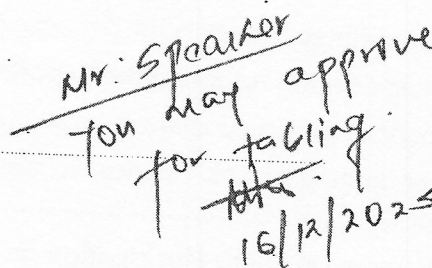 Mr. Speaker
You may approve
for tabling.
16/12/202